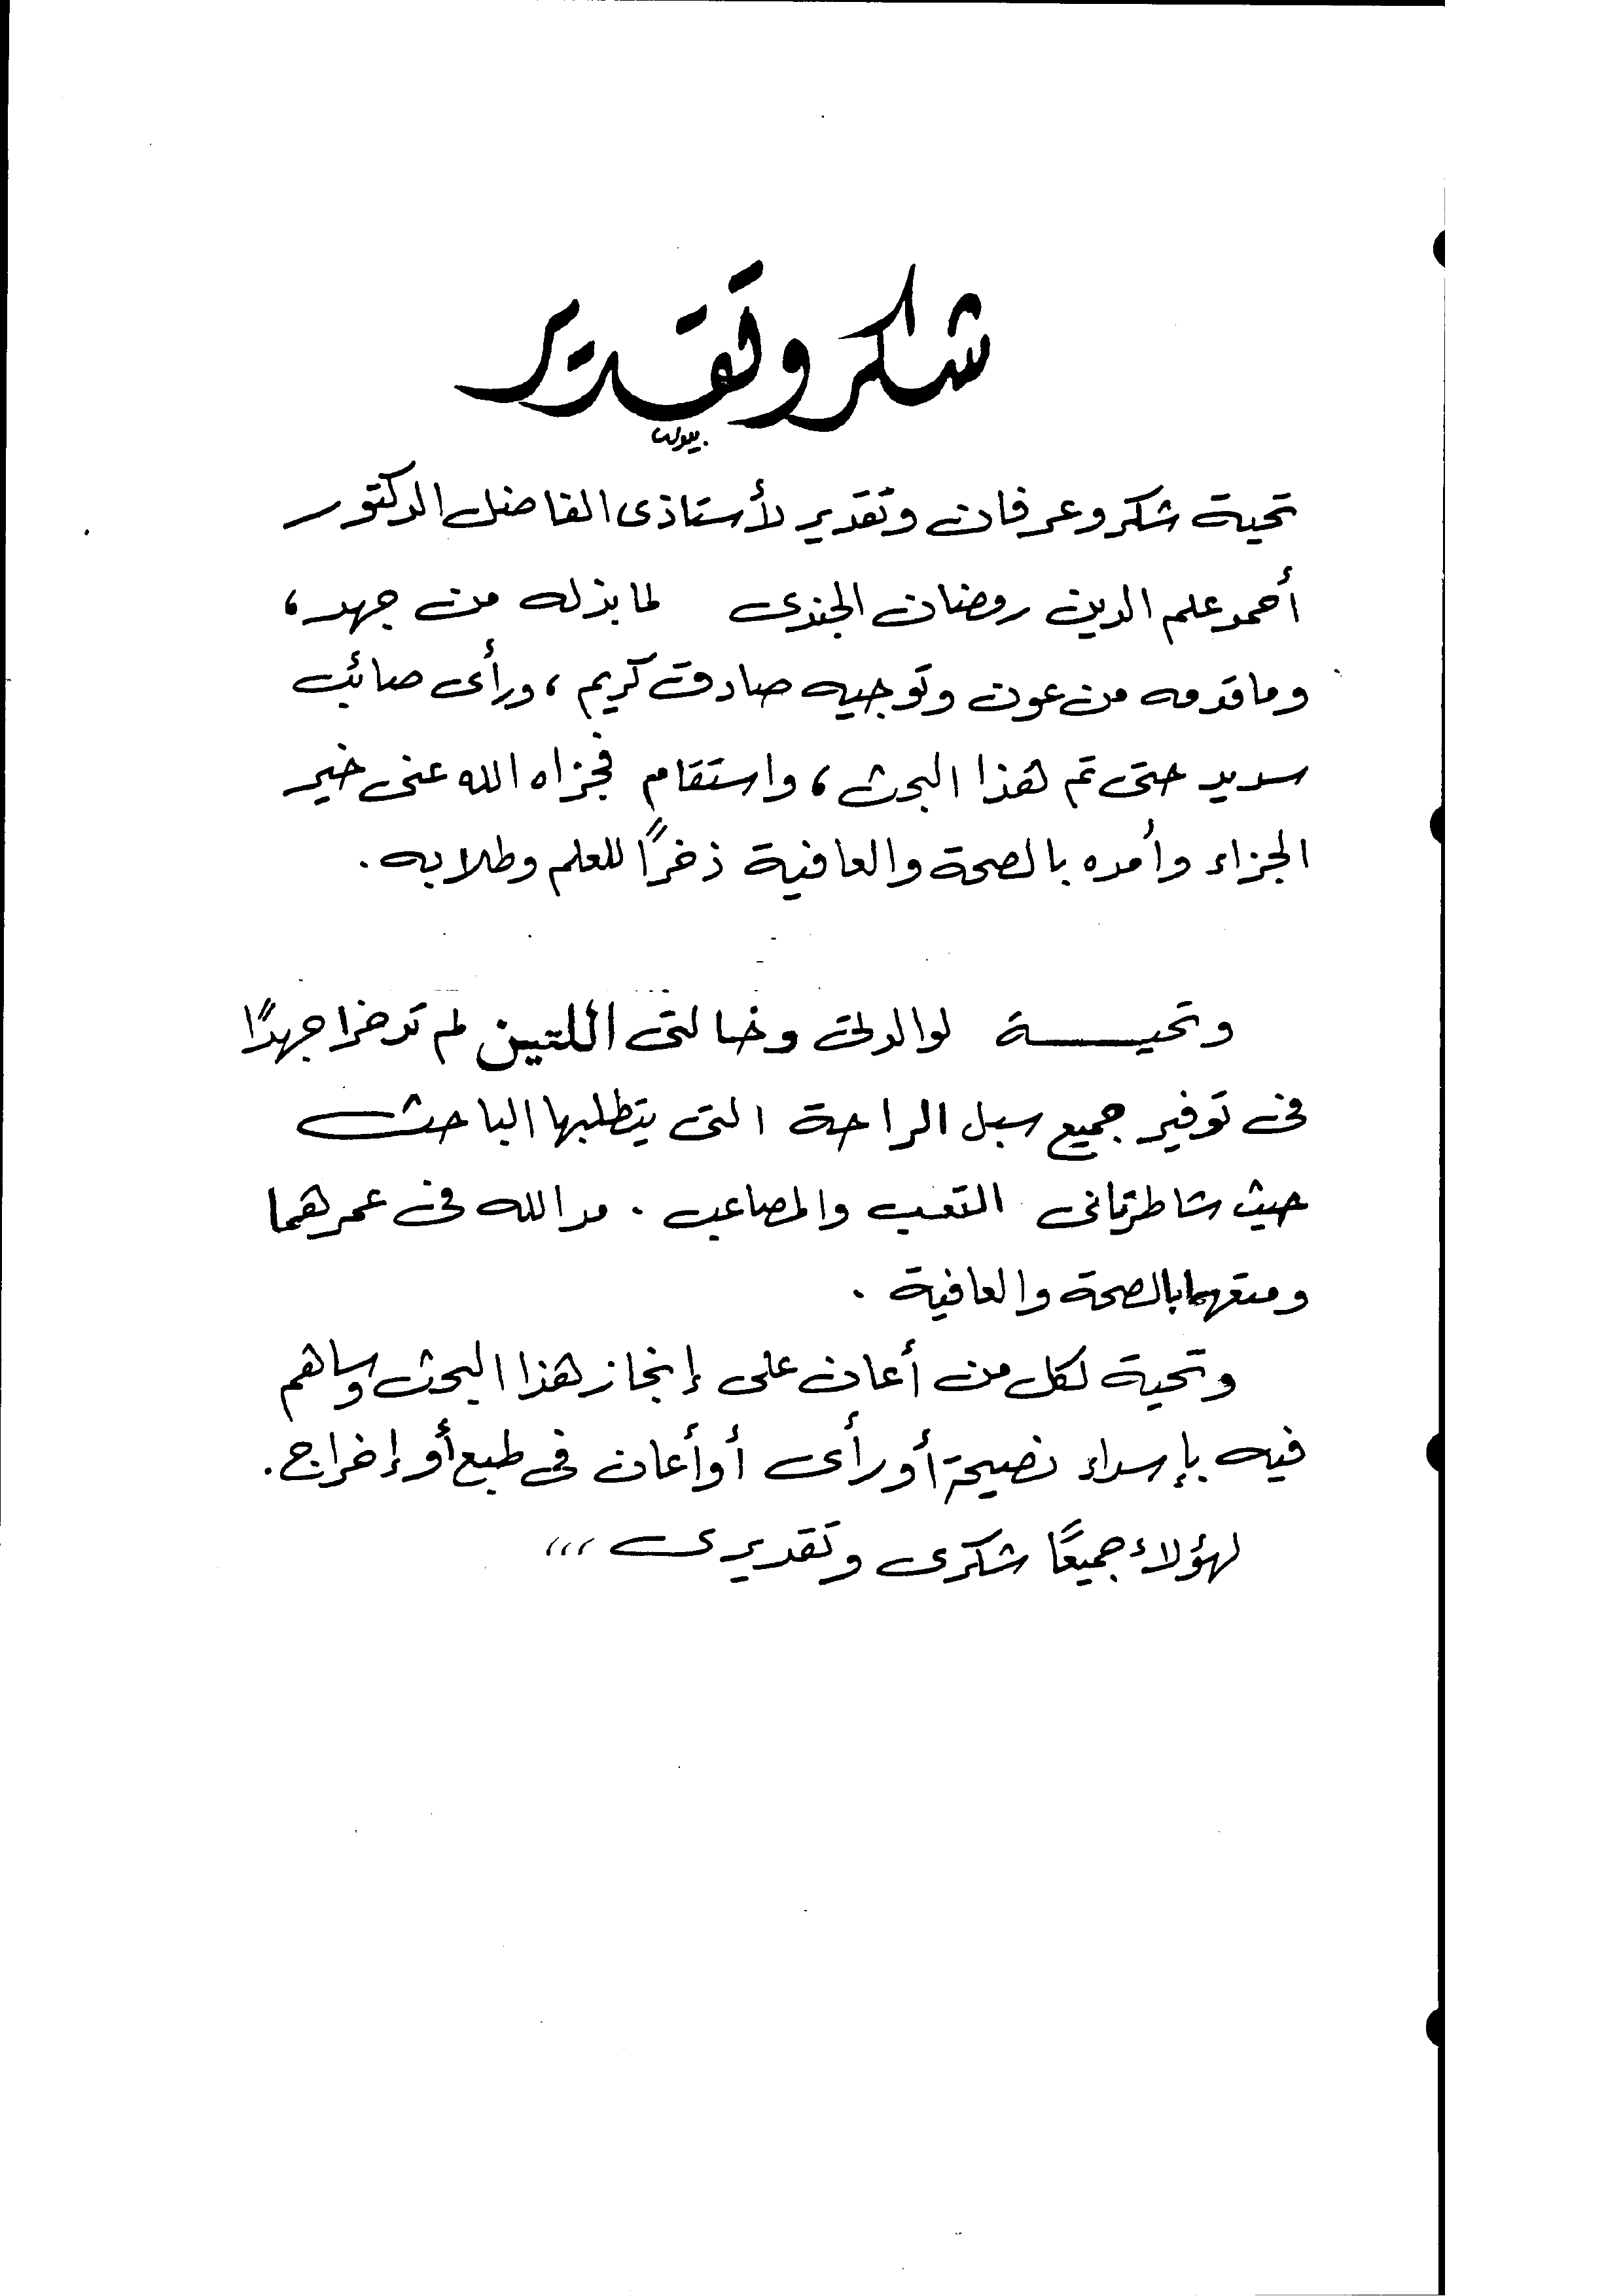 شكر وتقدير
تحية شكر وعرفان وتقدير لأستاذى الفاضل الدكتور
أحمد علم الدين رمضان الجندى لما بذله من جهد،
وما قدمه من عون وتوجيه صادق كريم، ورأى صائب
سديد حتى تم هذا البحث، واستقام فجزاه الله عنى خير
الجزاء وأمده بالصحة والعافية ذخرًا للعلم وطلابه.
وتحيـــة لوالدتى وخالتى اللتين لم تدخرا جهدًا
فى توفير جميع سبل الراحة التى يتطلبها الباحث
حيث شاطرتانى التعب والمصاعب. مد الله فى عمرهما
ومتعهما بالصحة والعافية.
وتحية لكل من أعان على إنجاز هذا البحث وساهم
فيه بإسداء نصيحة أو رأى أو أعان فى طبع أو إخراج.
لهؤلاء جميعًا شكرى وتقديرى ،،،